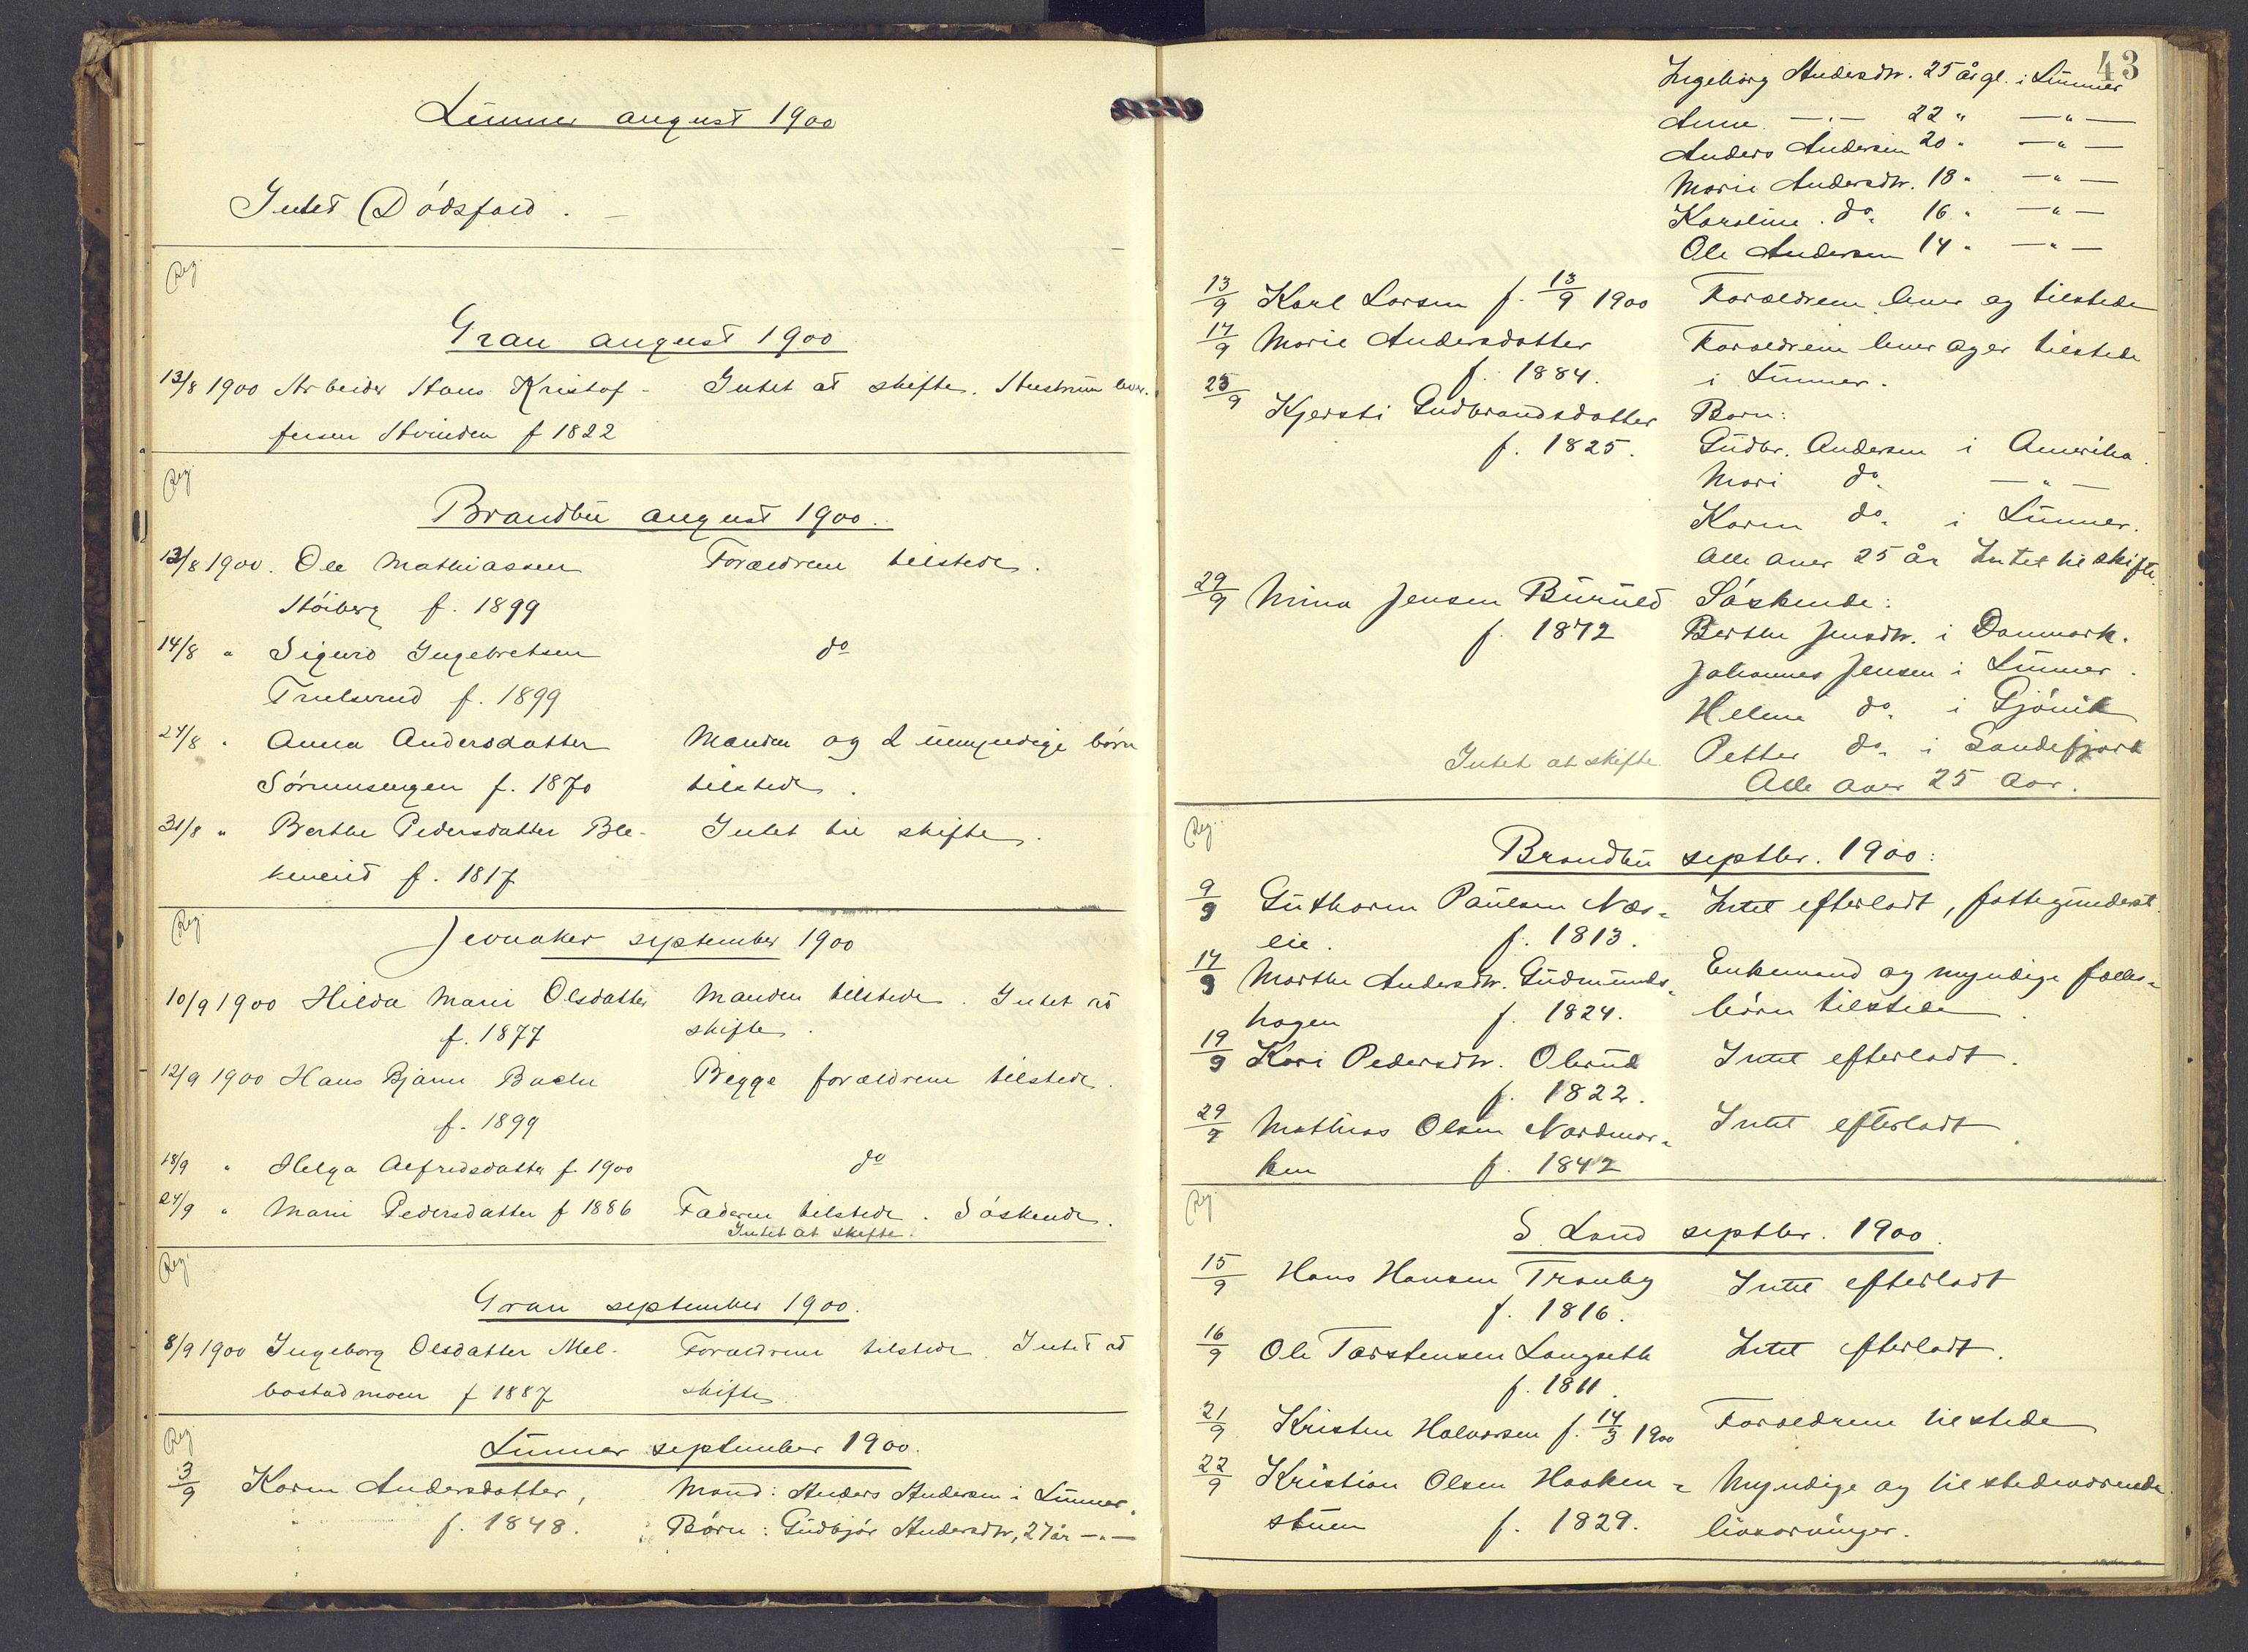 Lunner august 1900
Intet Dødsfald.
Reg.
Gran august 1900
13/8 1900 Arbeider Hans Kristof- Intet at skifte. Hustruen lever.
fersen Hvinden f 1822
Reg.
Brandbu august 1900.
13/8 1900. Ole Mathiassen Forældrene tilstede.
Høiberg f. 1899
14/8 " Sigurd Ingebretsen do
Trulserud f. 1899
24/8 " Anna Andersdatter Manden og 2 umyndige børn
Sørumsengen f. 1870 tilstede.
31/8 " Berthe Pedersdatter Ble- Intet til skifte.
kenerud f. 1817
Reg.
Jevnaker september 1900
10/9 1900 Hilda Marie Olsdatter Manden tilstede. Intet at
f. 1877 skifte.
12/9 1900 Hans Bjarne Bache Begge forældrene tilstede.
f. 1899
18/9 " Helga Alfredsdatter f. 1900 do
24/9 " Marie Pedersdatter f 1886 Faderen tilstede. Søskende.
Intet at skifte.
Reg.
Gran september 1900.
8/9 1900 Ingeborg Olsdatter Mel- Forældrene tilstede. Intet at
bostadmoen f 1887 skifte.
Reg.
Lunner september 1900.
3/9 Karen Andersdatter, Mand: Anders Andersen i Lunner.
f. 1848. Børn: Gudbjør Andersdtr, 27 år —"—
43
Ingeborg Andersdtr. 25 år gl. i Lunner
Anne —"— 22 " —"—
Anders Andersen 20 " —"—
Marie Andersdtr. 18 " —"—
Karoline do. 16 " —"—
Ole Andersen 14 " —"—
13/9 Karl Larsen f. 13/9 1900 Forældrene lever og tilstede
17/9 Marie Andersdatter Forældrene lever og er tilstede
f. 1884. i Lunner.
25/9 Kjersti Gudbrandsdatter Børn:
f. 1825. Gudbr. Andersen i Amerika.
Mari do. —"—
Karen do. i Lunner.
Alle over 25 år Intet til skifte.
29/9 Mina Jensen Burud Søskende:
f. 1872 Berthe Jensdtr. i Danmark.
Johannes Jensen i Lunner.
Helene do. i Gjøvik
Intet at skifte. Petter do. i Sandefjord
Alle over 25 Aar.
Reg.
Brandbu septbr. 1900:
9/9 Guthorm Paulsen Næs- Intet efterladt, fattigunderst.
eie. f. 1813.
17/9 Marthe Andersdtr. Gudmunds- Enkemand og myndige fælles-
hagen f. 1824. børn tilstede.
19/9 Kari Pedersdtr. Olerud Intet efterladt.
f. 1822.
29/9 Mathias Olsen Nordmar- Intet efterladt.
ken f. 1842
Reg.
S. Land septbr. 1900.
15/9 Hans Hansen Tranby Intet efterladt
f. 1816.
16/9 Ole Torstensen Langseth Intet efterladt.
f. 1811.
21/9 Kristen Halvorsen f. 14/3 1900 Forældrene tilstede
22/9 Kristian Olsen Haaken- Myndige og tilstedeværende
stuen f. 1829. livsarvinger.